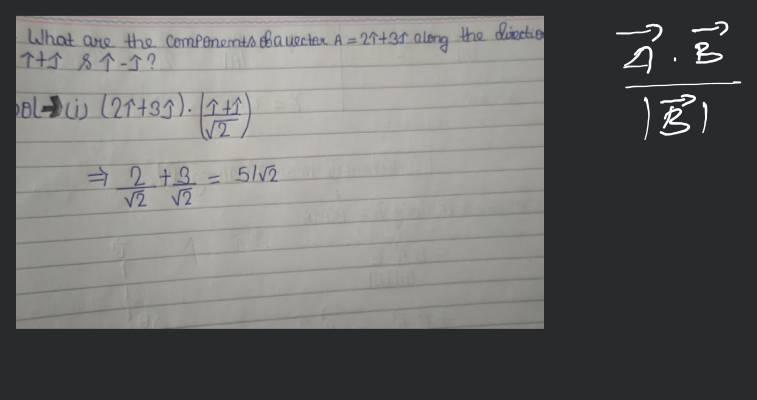 What are the components of a vector A = 2î+3ĵ along the direction
î+ĵ & î-ĵ?
Sol→ (i) (2î+3ĵ).(î+ĵ/√2)
⇒ 2/√2 + 3/√2 = 5/√2
A⃗ . B⃗
|B⃗|